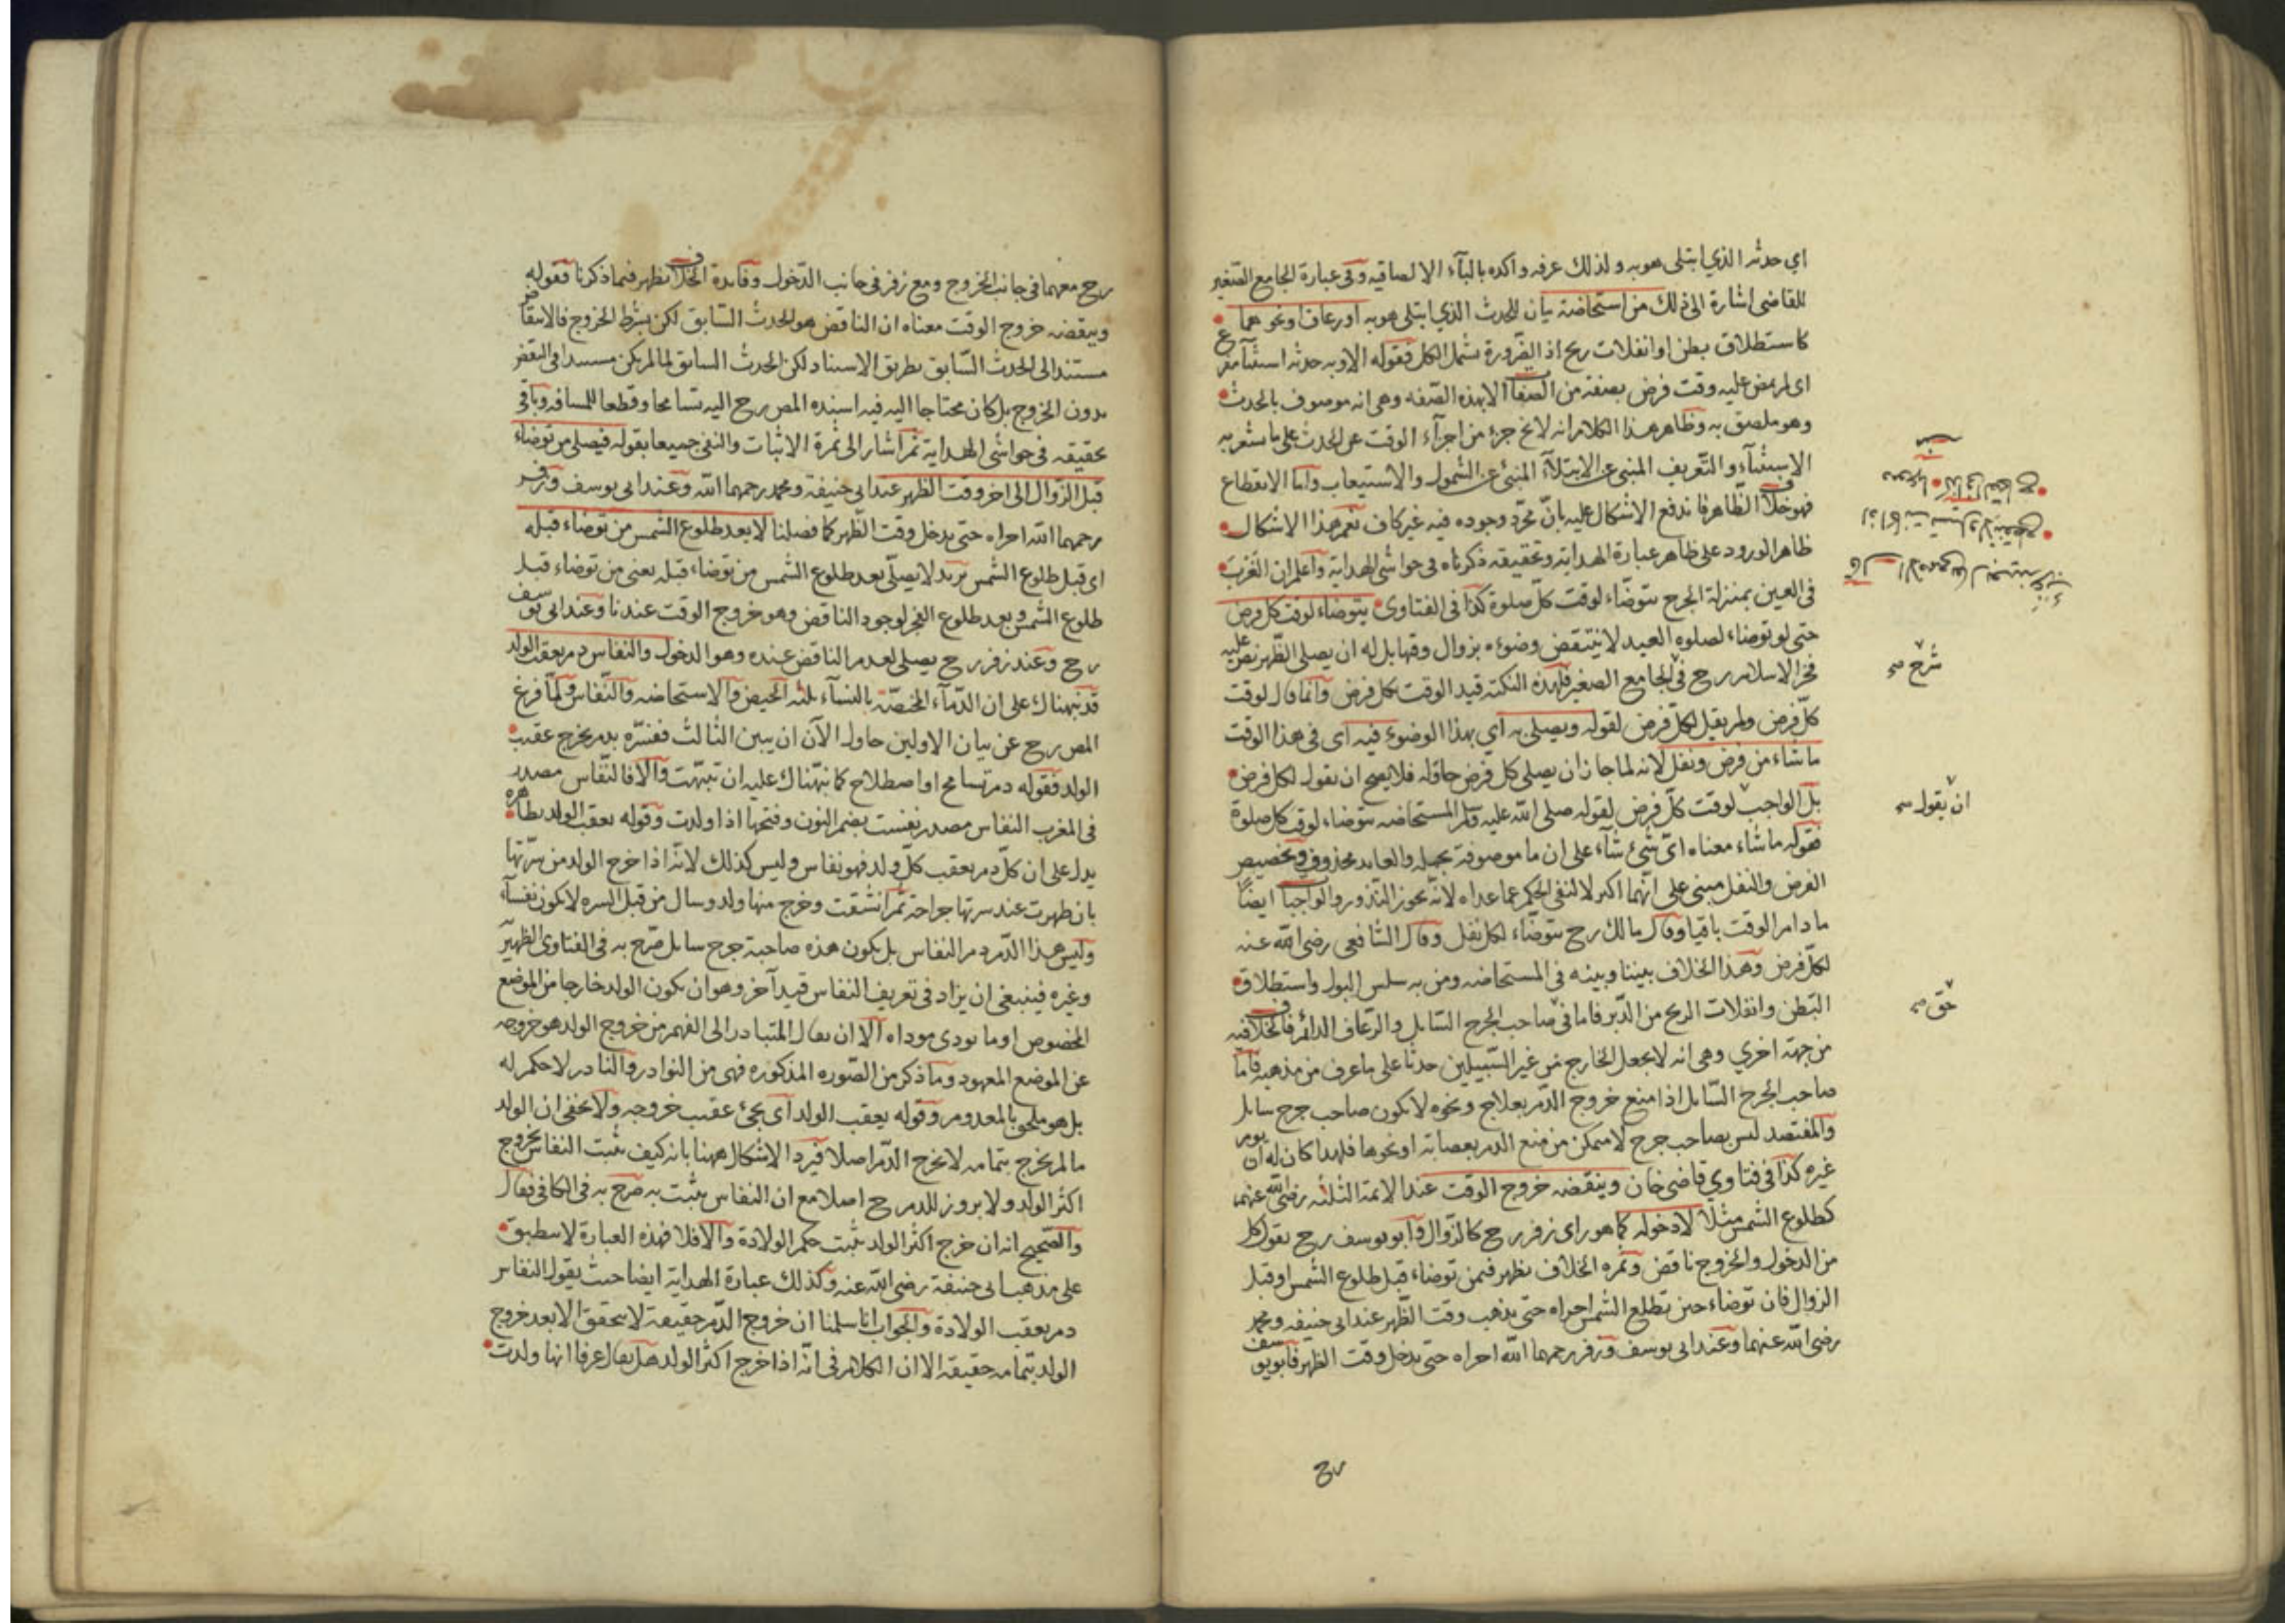 اي حدثه الذي ابتلى هو به ولذلك عرفه واكده بالبآء الالصاقيه وفى عبارة الجامع الصغير
للقاضى اشارة الى ذلك من استحاضة بيان للحدث الذي ابتلى هو به او رعاف او نحوهما
كاستطلاق بطن او انفلات ريح اذ الضرورة تشمل الكل فقوله الا وبه حدثه استثنآء مفرغ
اى لم يمض عليه وقت فرض بصفة من الصفات الا بهذه الصفه وهى انه موصوف بالحدث
وهو ملصق به وظاهر هذا الكلام انه لا يخ جزء من اجزآء الوقت عن الحدث على ما يشعر به
الاستثنآء والتعريف المنبى عن الابتلآء المنبئ عن الشمول والاستيعاب واما الانقطاع
فهو خلاف الظاهر فاندفع الاشكال عليه بانّ مجرّد وجوده فيه غير كاف نعم هذا الاشكال
ظاهر الورود على ظاهر عبارة الهداية وتحقيقه ذكرناه فى حواشى الهداية واعلم ان الغرب
فى العين بمنزلة الجرح تتوضّاء لوقت كلّ صلوة كذا فى الفتاوى يتوضاء لوقت كل فرض
حتى لو توضاء لصلوه العيد لا ينتقض وضوءه بزوال وقتها بل له ان يصلى الظهر نصّ عليه
فخر الاسلام رح فى الجامع الصغير فلهذه النكته قيد الوقت بكل فرض وانما قال لوقت
كلّ فرض ولم يقل لكلّ فرض لقوله ويصلى به اي بهذا الوضوء فيه اى فى هذا الوقت
ما شاء من فرض ونفل لانه لما جاز ان يصلى كل فرض حاوله فلا يصح ان يقول لكل فرض
بل الواجب لوقت كلّ فرض لقوله صلى الله عليه وسلم المستحاضه تتوضاء لوقت كل صلوة
فقوله ما شاء معناه اىّ شئ شآء على ان ما موصوفة بجمله والعايد محذوف وتخصيص
الفرض والنفل مبنى على انّهما اكبر لا لنفى الحكم عما عداه لانه يجوز النذور والواجبات ايضًا
ما دام الوقت باقيا وقال مالك رح تتوضّاء لكل نفل وقال الشافعى رضى الله عنه
لكلّ فرض وهذا الخلاف بيننا وبينه فى المستحاضه ومن به سلس البول واستطلاق
البطن وانفلات الريح من الدّبر فاما فى صاحب الجرح السّايل والرّعاف الدائم فالخلاف فيه
من جهة اخري وهى انه لا يجعل الخارج من غير السّبيلين حدثا على ما عرف من مذهبه فامّا
صاحب الجرح السّايل اذا منع خروج الدّم بعلاج ونحوه لا يكون صاحب جرح سايل
والمفتصد ليس بصاحب جرح لا متمكن من منع الدم بعصابة او نحوها فلهذا كان له ان يوم
غيره كذا فى فتاوي قاضى خان وينقضه خروج الوقت عند الايمة الثلثه رضى الله عنهما
كطلوع الشمس مثلا لا دخوله كما هو راى زفر رح كالزّوال وابو يوسف رح يقول كل
من الدخول والخروج ناقض وثمره الخلاف يظهر فيمن توضاء قبل طلوع الشمس او قبل
الزوال فان توضاء حين تطلع الشمس اجراه حتى يذهب وقت الظّهر عند ابى حنيفه ومحمد
رضى الله عنهما وعند ابى يوسف وزفر رحمهما الله اجراه حتى يدخل وقت الظهر فابو يوسف
شرح صح
ان يقول صح
حق صح
رح معهما فى جانب الخروج ومع زفر فى جانب الدّخول وفايدة الخلاف تظهر فيما ذكرنا فقوله
وينقضه خروج الوقت معناه ان الناقض هو الحدث السّابق لكن بشرط الخروج فالانتقاض
مستند الى الحدث السّابق بطريق الاسناد لكن الحدث السابق لما لم يكن مستبدا فى النقض
بدون الخروج بل كان محتاجا اليه فيه اسنده المص رح اليه تسامحا وقطعا للمسافه وباقى
تحقيقه فى حواشى الهداية ثم اشار الى ثمرة الاثبات والنفى جميعا بقوله فيصلى من توضاء
قبل الزّوال الى اخر وقت الظهر عند ابى حنيفة ومحمد رحمهما الله وعند ابى يوسف وزفر
رحمهما الله اجراه حتى يدخل وقت الظّهر كما فصلنا لا بعد طلوع الشمس من توضاء قبله
اى قبل طلوع الشمس يريد لا يصلّى بعد طلوع الشمس من توضاء قبله يعنى من توضاء قبل
طلوع الشمس وبعد طلوع الفجر لوجود الناقض وهو خروج الوقت عندنا وعند ابى يوسف
رح وعند زفر رح يصلى لعدم الناقض عنده وهو الدخول والنفاس دم يعقب الولد
قد نبهناك على ان الدّمآء المختصّة بالنسآء ثلثه الحيض والاستحاضه والنّفاس ولمّا فرغ
المص رح عن بيان الاولين حاول الآن ان يبين الثالث ففسّره بدم يخرج عقيب
الولد فقوله دم تسامح او اصطلاح كما نبّهناك عليه ان تنبّهت والا فالنّفاس مصدر
فى المغرب النفاس مصدر نفست بضم النون وفتحها اذا ولدت وقوله يعقب الولد بظاهره
يدل على ان كلّ دم يعقب كلّ ولد فهو نفاس وليس كذلك لانّه اذا خرج الولد من سرّتها
بان ظهرت عند سرتها جراحة ثمّ انشقت وخرج منها ولد وسال من قبل السره لا يكون نفسآء
وليس هذا الدّم دم النفاس بل يكون هذه صاحبة جرح سايل صرّح به فى الفتاوى الظهيرية
وغيره فينبغى ان يزاد فى تعريف النفاس قيد آخر وهو ان يكون الولد خارجا من الموضع
المخصوص او ما يودى موداه الا ان يقال المتبادر الى الفهم من خروج الولد هو خروجه
عن الموضع المعهود وما ذكر من الصّوره المذكوره فهى من النوادر والنادر لا حكم له
بل هو ملحق بالمعدوم وقوله يعقب الولد اى يجئ عقيب خروجه ولا يخفى ان الولد
ما لم يخرج بتمامه لا يخرج الدّم اصلا فيرد الاشكال ههنا بانه كيف يثبت النفاس بخروج
اكثر الولد ولا بروز للدم رح اصلا مع ان النفاس يثبت به صرح به فى الكافى فقال
والصّحيح انه ان خرج اكثر الولد يثبت حكم الولادة والا فلا فهذه العبارة لا ينطبق
على مذهب ابى حنيفة رضى الله عنه وكذلك عبارة الهداية ايضا حيث يقول النفاس
دم يعقب الولادة والجواب انا سلمنا ان خروج الدّم حقيقة لا يتحقق الا بعد خروج
الولد بتمامه حقيقة الا ان الكلام فى انّه اذا خرج اكثر الولد هل يقال عرفا انها ولدت